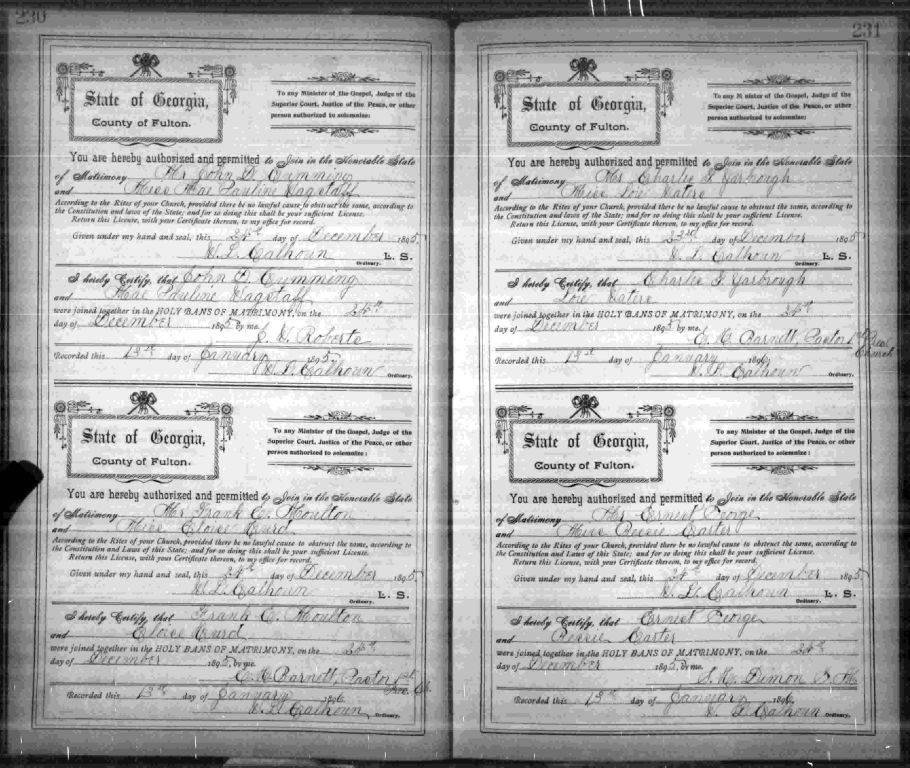 230
State of Georgia,
County of Fulton.
To any Minister of the Gospel, Judge of the
Superior Court, Justice of the Peace, or other
person authorized to solemnize:
You are hereby authorized and permitted to Join in the Honorable State
of Matrimony Mr John D. Cumming
and Miss Mae Pauline Wagstaff
According to the Rites of your Church, provided there be no lawful cause to obstruct the same, according to
the Constitution and laws of the State; and for so doing this shall be your sufficient License.
Return this License, with your Certificate thereon, to my office for record.
Given under my hand and seal, this 24th day of December 1895
W. L. Calhoun L. S.
Ordinary.
I hereby Certify, that John D. Cumming
and Mae Pauline Wagstaff
were joined together in the HOLY BANS OF MATRIMONY, on the
day of December 1895 by me.
Roberts
Recorded this 13th day of January 1895
W. L. Calhoun Ordinary.
State of Georgia,
County of Fulton.
To any Minister of the Gospel, Judge of the
Superior Court, Justice of the Peace, or other
person authorized to solemnize:
You are hereby authorized and permitted to Join in the Honorable State
of Matrimony Mr Frank C. Moulton
and Miss Eloise Hurd
According to the Rites of your Church, provided there be no lawful cause to obstruct the same, according to
the Constitution and Laws of this State; and for so doing this shall be your sufficient License.
Return this License, with your Certificate thereon, to my office for record.
Given under my hand and seal, this 24th day of December 1895
W. L. Calhoun L. S.
Ordinary.
I hereby Certify, that Frank C. Moulton
and Eloise Hurd
were joined together in the HOLY BANS OF MATRIMONY, on the
day of December 1895, by me.
Barnett, Pastor 1st
Pres. Ch.
Recorded this 13th day of January 1896
W. L. Calhoun, Ordinary.
231
State of Georgia,
County of Fulton.
To any Minister of the Gospel, Judge of the
Superior Court, Justice of the Peace, or other
person authorized to solemnize:
You are hereby authorized and permitted to Join in the Honorable State
of Matrimony Mr Charlie Yarbrough
and Miss
According to the Rites of your Church, provided there be no lawful cause to obstruct the same, according to
the Constitution and laws of the State; and for so doing this shall be your sufficient License.
Return this License, with your Certificate thereon, to my office for record.
Given under my hand and seal, this 23rd day of December 1895
W. L. Calhoun L. S.
Ordinary.
I hereby Certify, that Charlie Yarbrough
and
were joined together in the HOLY BANS OF MATRIMONY, on the
day of December 1895 by me.
Barnett, Pastor 1st Pres.
Church
Recorded this 13th day of January 1896
W. L. Calhoun Ordinary.
State of Georgia,
County of Fulton.
To any Minister of the Gospel, Judge of the
Superior Court, Justice of the Peace, or other
person authorized to solemnize:
You are hereby authorized and permitted to Join in the Honorable State
of Matrimony Mr Ernest George
and Miss Carter
According to the Rites of your Church, provided there be no lawful cause to obstruct the same, according to
the Constitution and laws of this State; and for so doing this shall be your sufficient License.
Return this License, with your Certificate thereon, to my office for record.
Given under my hand and seal, this 24th day of December 1895
W. L. Calhoun L. S.
Ordinary.
I hereby Certify, that Ernest George
and Carter
were joined together in the HOLY BANS OF MATRIMONY, on the
day of December 1895 by me.
Dimon
Recorded this 13th day of January 1896
W. L. Calhoun Ordinary.